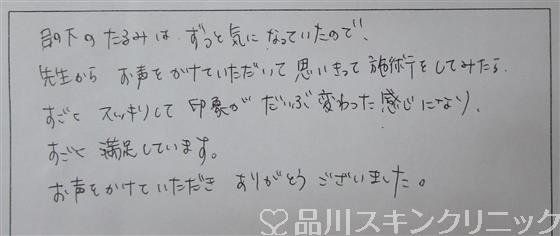 目の下のたるみは ずっと気になっていたので、
先生から お声をかけていただいて 思いきって 施術行をしてみたら
すごく スッキリして 印象が だいぶ変わった感じになり、
すごく 満足しています。
お声をかけていただき ありがとうございました。
品川スキンクリニック